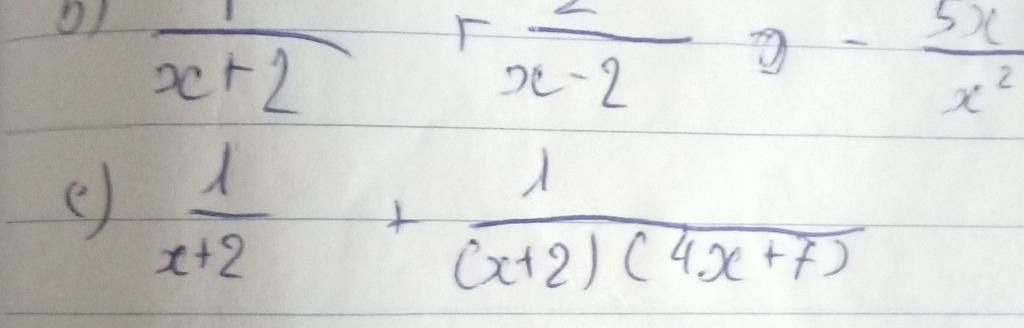 \frac{1}{x+2} + \frac{2}{x-2} - \frac{5x}{x^2}
c) \frac{1}{x+2} + \frac{1}{(x+2)(4x+7)}